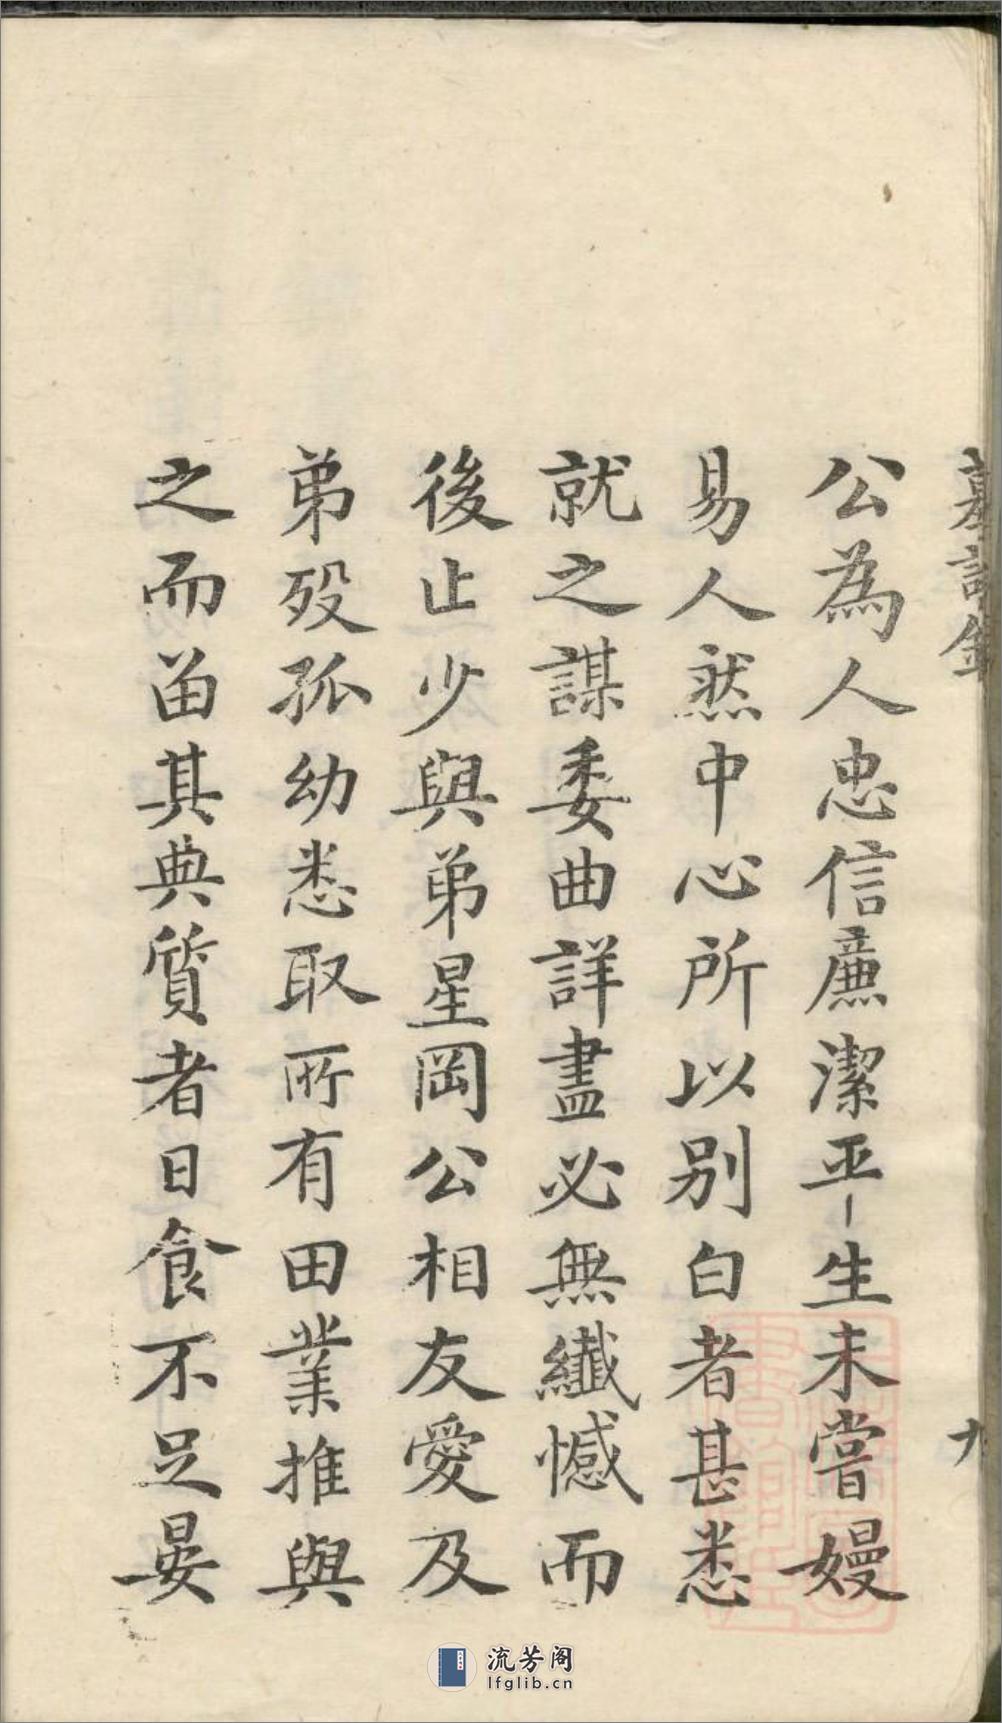 墓誌銘
九
公為人忠信廉潔平生未嘗嫚
易人然中心所以别白者甚悉
就之謀委曲詳盡必無纖憾而
後止少與弟星岡公相友愛及
弟歿孤幼悉取所有田業推與
之而畱其典質者日食不足晏
流芳阁
lfglib.cn